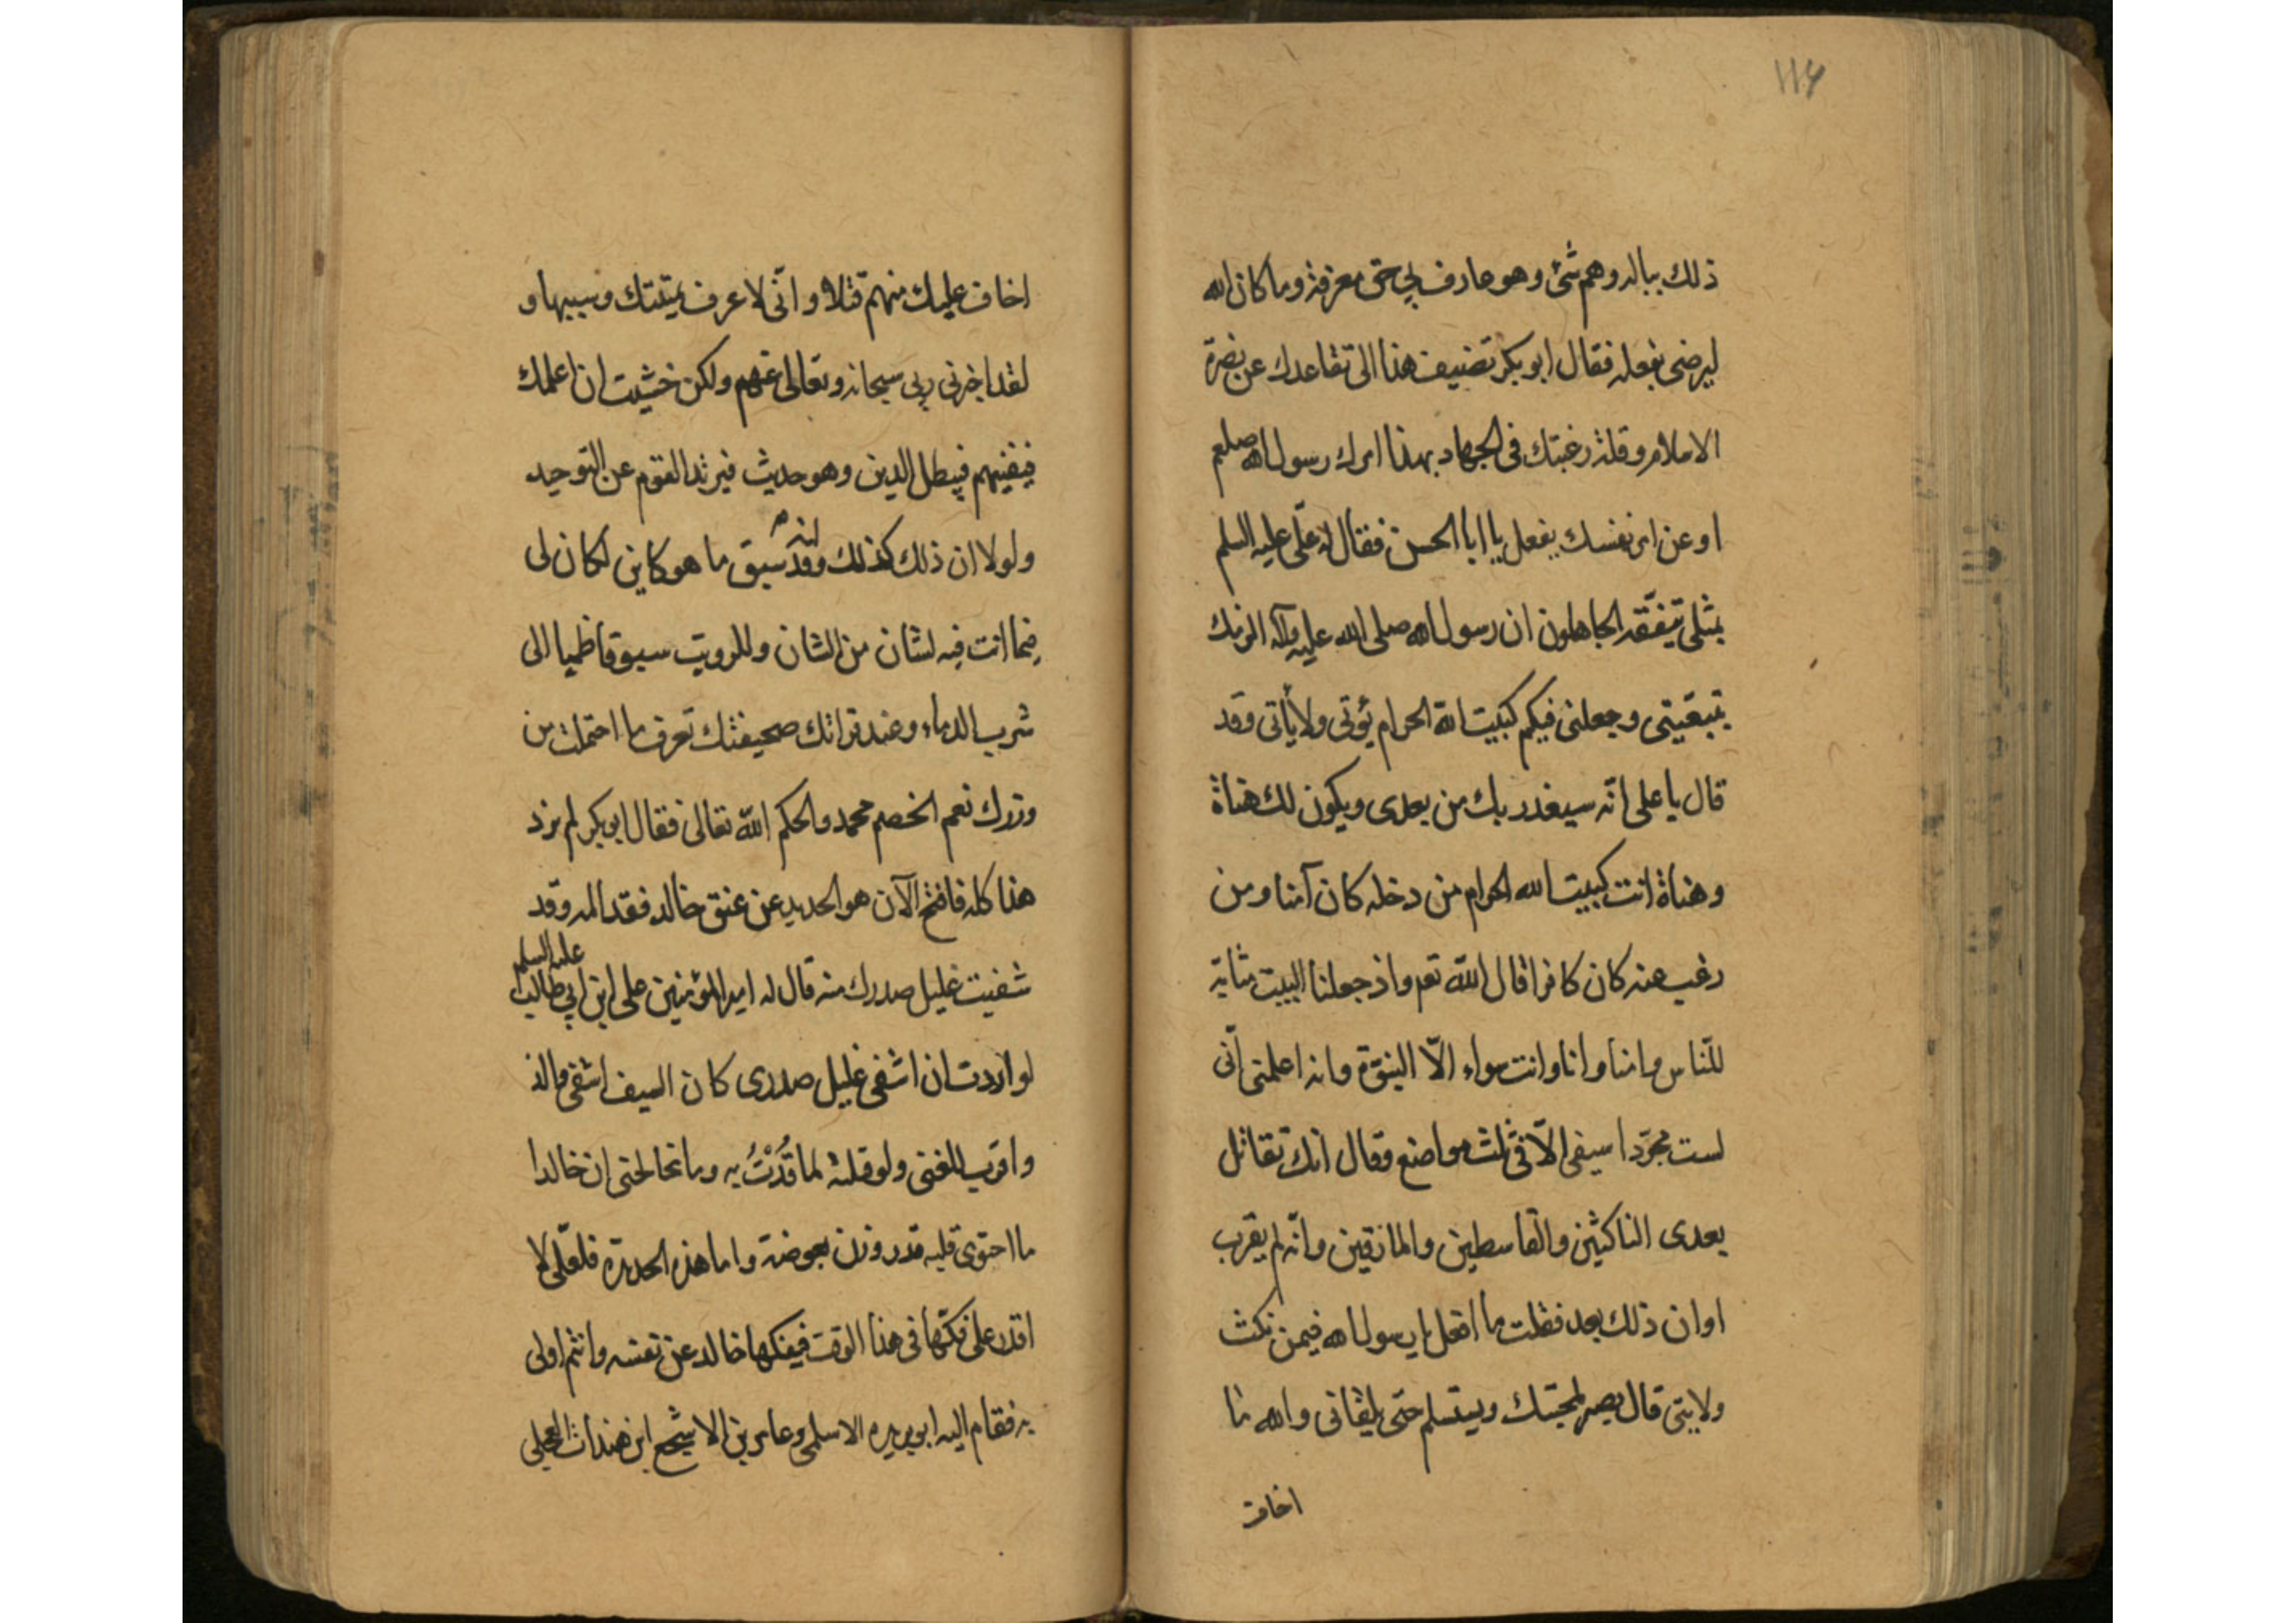 ١١٤
ذلك بباله وهم شئ وهو عارف بي حق معرفة وما كان الله
ليرضى بفعله فقال ابو بكر تضيف هذا الى تقاعدك عن نصرة
الاسلام وقلة رغبتك فى الجهاد بهذا امرك رسول الله صلعم
او عن امر نفسك يفعل يا ابا الحسن فقال له علّى عليه السلم
بمثلى يتفقّه الجاهلون ان رسول الله صلى الله عليه وآله الزمك
بتبعيّتى وجعلنى فيكم كبيت الله الحرام يؤتى ولا يأتى وقد
قال يا على انّه سيغدر بك من بعدى ويكون لك هناة
وهناة انت كبيت الله الحرام من دخله كان آمنا ومن
رغب عنه كان كافرا قال الله تع‍ واذ جعلنا البيت مثابة
للنّاس وامنا وانا وانت سواء الّا النبوّة وانه اعلمنى انّى
لست مجرّدا سيفى الّا فى ثلث مواضع وقال انك تقاتل
بعدى الناكثين والقاسطين والمارقين وانّه لم يقرب
اوان ذلك بعد فقلت ما افعل يا رسول الله فيمن نكث
ولايتى قال يصبر لمحبتك ويستسلم حتى يلقانى والله ما
اخاف
اخاف عليك منهم قتلا وانّى لا عرف بميتتك وسببها و
لقد اخبرنى ربى سبحانه وتعالى عنهم ولكن خشيت ان اعلمك
فيفنيهم فيبطل الدين وهو حديث فيرتد القوم عن التوحيد
ولولا ان ذلك كذلك وقد سبق ما هو كاين لكان لى
فيما انت فيه لشان من الشان وللرويت سيوفا ظميا الى
شرب الدماء وعند قرائك صحيفتك تعرف ما احتملت من
وزرك نعم الخصم محمد والحكم الله تعالى فقال ابو بكر لم نرد
هذا كله فافتح الآن هو الحديد عن عنق خالد فقد المه وقد
شفيت غليل صدرك منه قال له امير المؤمنين على ابن ابي طالب عليه السلم
لو اردت ان اشفى غليل صدرى كان السيف اشفى والذ
واقرب للفنى ولو قتلته لما قُدْتُ به وما نخالجنى ان خالدا
ما احتوى قلبه قدر وزن بعوضة واما هذه الحديدة فلعلّى لا
اقدر على فكّها فى هذا الوقت فيفكها خالد عن نفسه وانتم اولى
به فقام اليه ابو بريده الاسلمى وعامر بن الاشجع العجلى